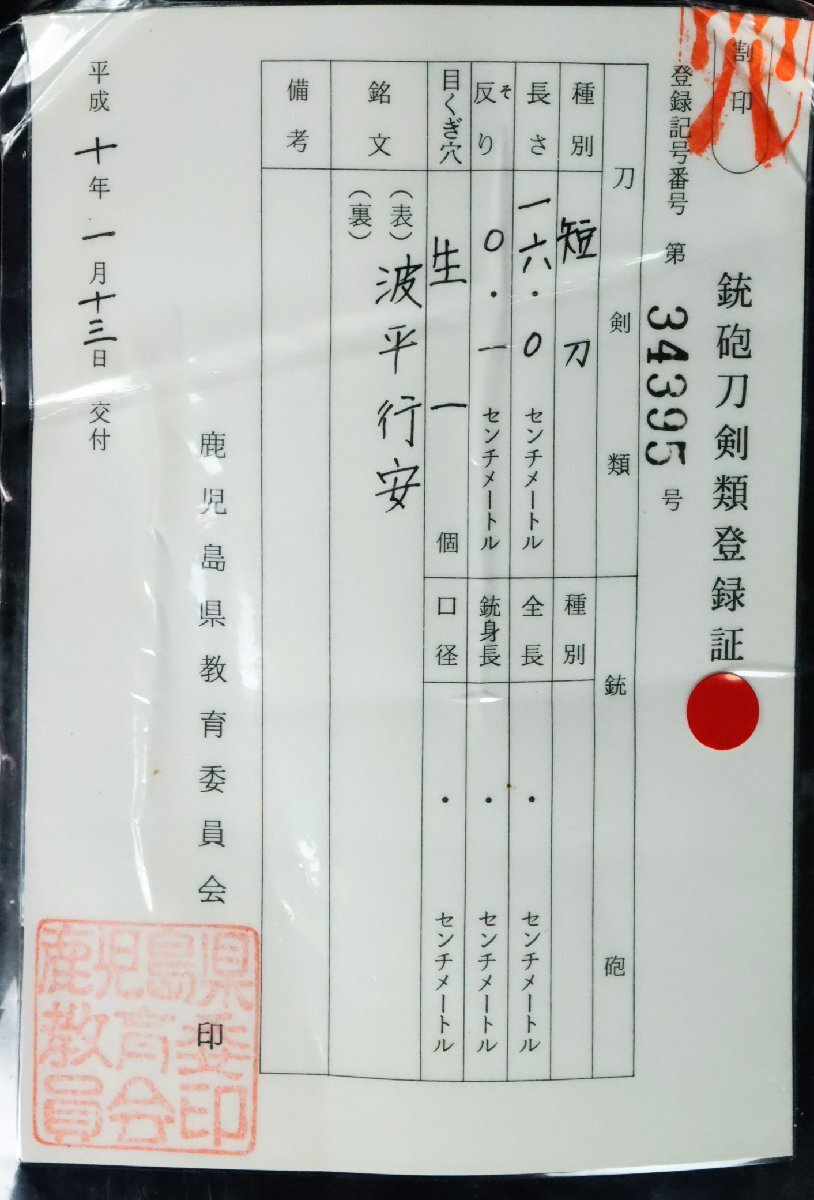 割印
銃砲刀剣類登録証
登録記号番号 第 34395 号
刀剣類
種別 短刀
長さ 一六・0 センチメートル
反り そ 0・一 センチメートル
目くぎ穴 生 一 個
銘文 (表) 波平行安
(裏)
備考
銃砲
種別
全長 ・ センチメートル
銃身長 ・ センチメートル
口径 ・ センチメートル
平成十年一月十三日 交付
鹿児島県教育委員会 印
鹿児島県
教育委
員会印